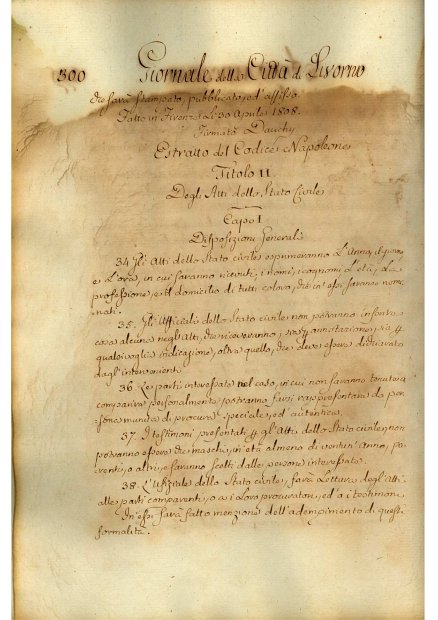 300 Giornale della Città di Livorno
che sarà stampato, pubblicato, ed affisso.
Fatto in Firenze Li 30 Aprile 1808.
Firmato Dauchy
Estratto del Codice Napoleone
Titolo II.
Degli Atti dello Stato Civile
Capo I
Disposizioni Generali
34. Gli Atti dello Stato civile esprimeranno L'Anno, il giorno
e L'ora, in cui saranno ricevuti, i nomi, i cognomi L'età, La
professione, e il domicilio di tutti coloro, che in essi saranno nomi-
nati.
35. Gli Uffiziali dello Stato civile non potranno inserire
cosa alcuna negli Atti, che riceveranno, annotazione, sia
qualsivoglia indicazione, oltre quello, che deve essere dichiarato
dagl'intervenienti.
36. Le parti interessate nel caso, in cui non saranno tenute a
comparire personalmente potranno farsi rappresentare da per-
sone munite di procura speciale, ed autentica.
37. I testimoni presentati gli Atti dello Stato civile non
potranno essere che maschi, in età almeno di ventun'Anno, pa-
renti, o altri, e saranno scelti dalle persone interessate.
38. L'Uffiziale dello Stato civile, farà Lettura degli atti
alle parti comparenti, o a i Loro procuratori, ed a i testimoni.
In essi sarà fatto menzione dell'adempimento di queste
formalità.